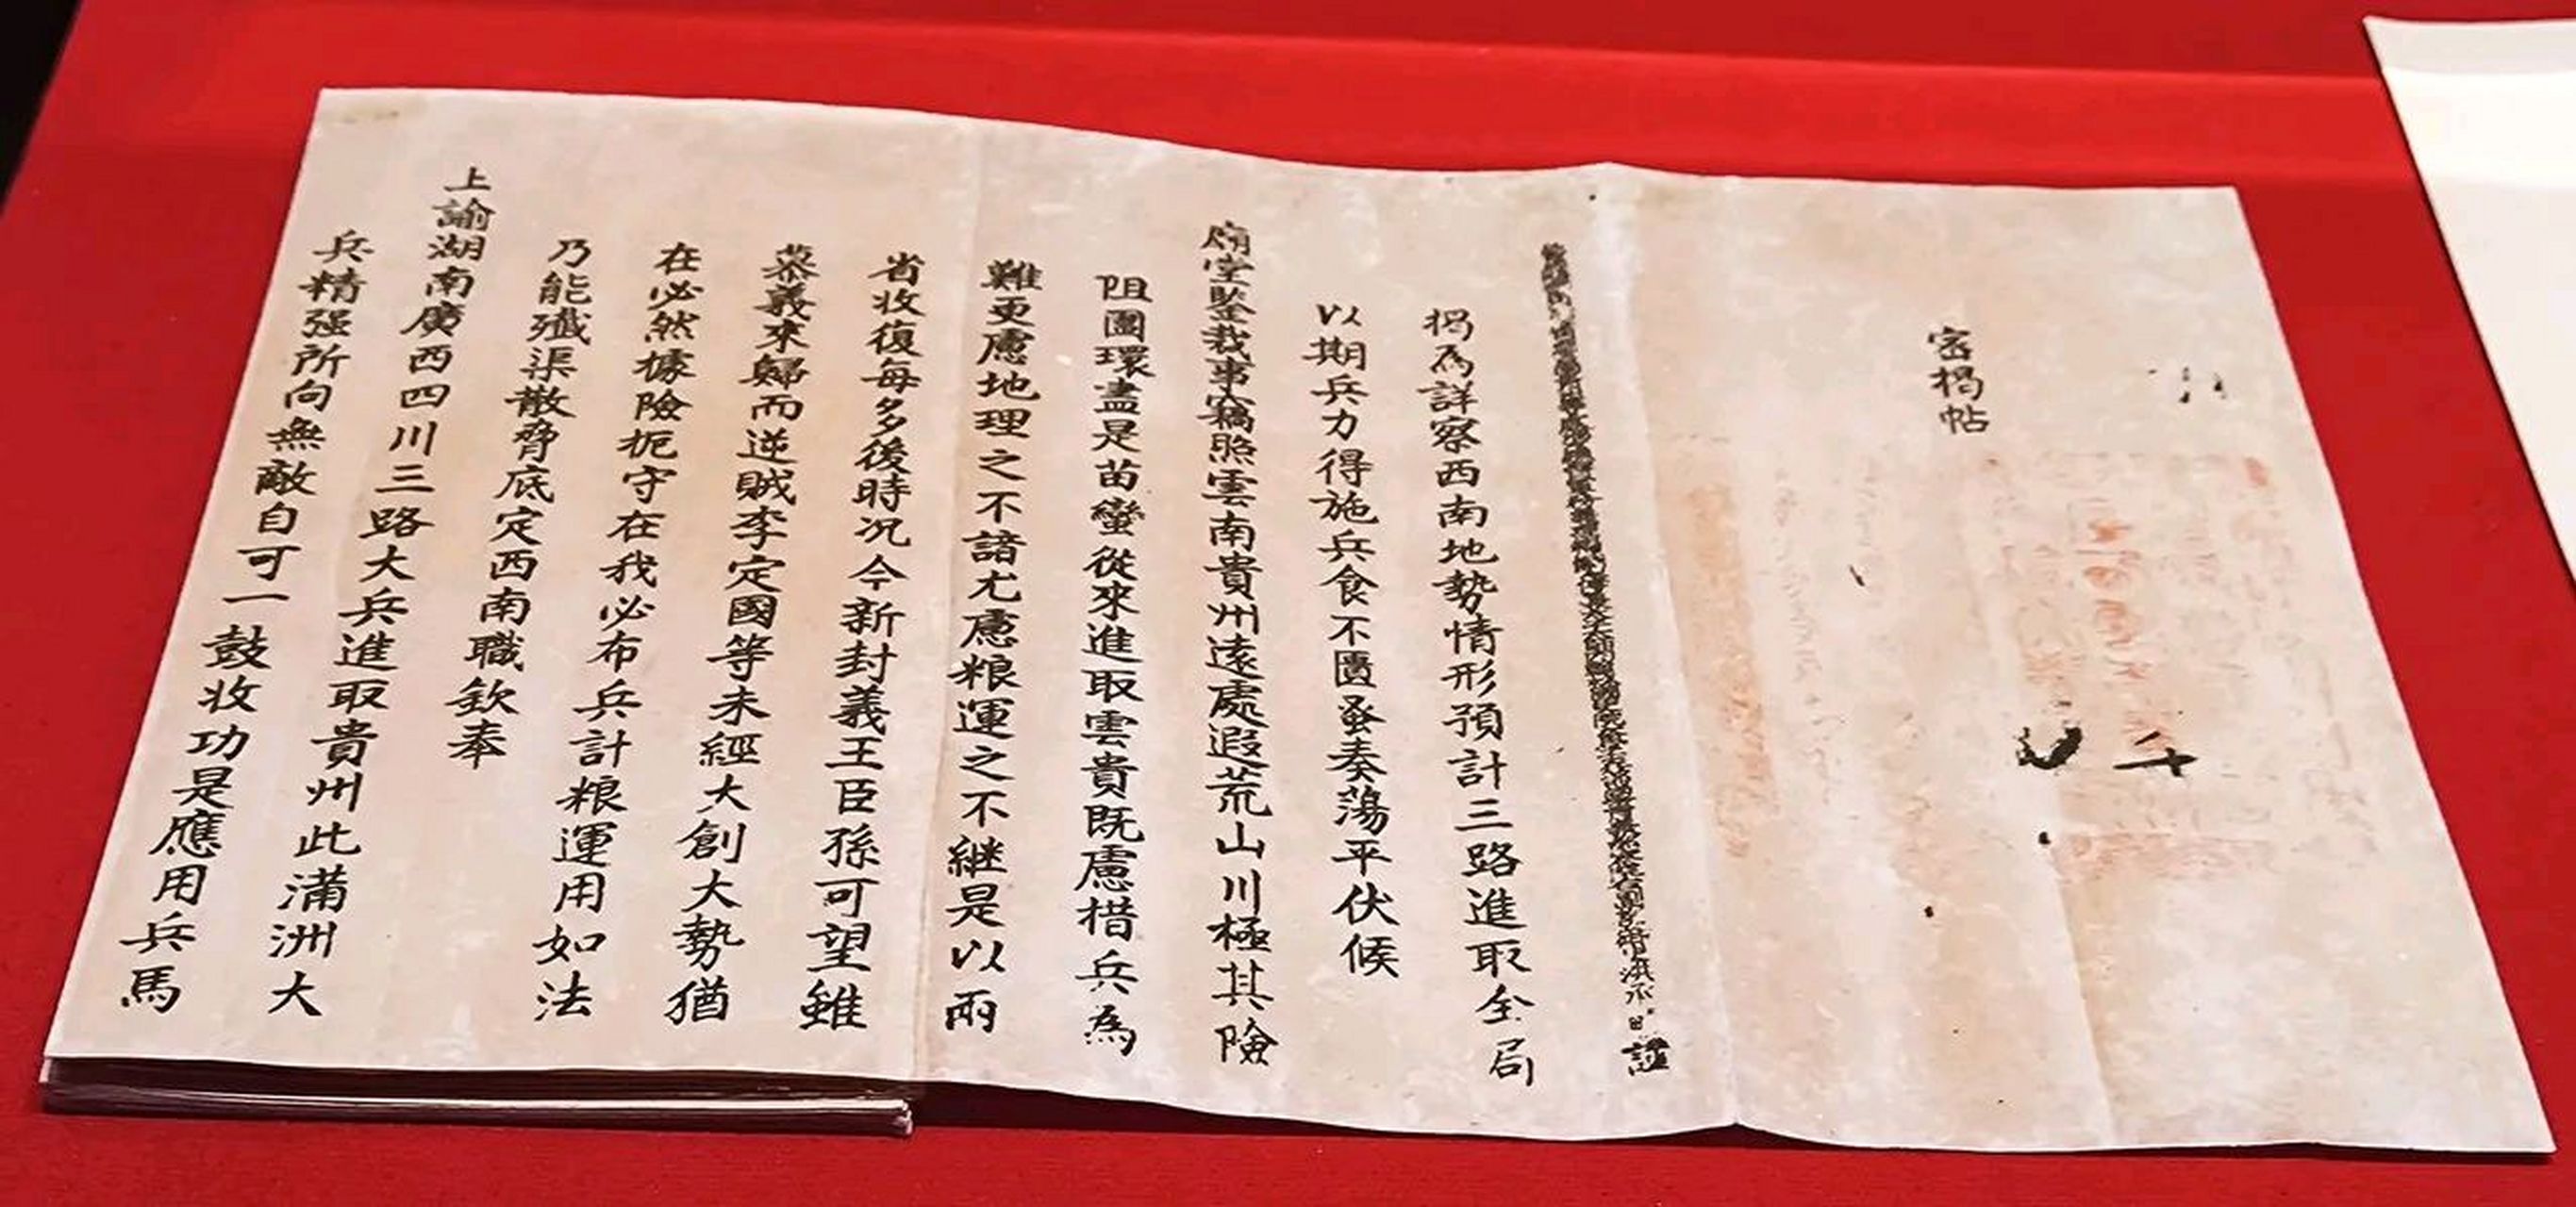 密揭帖
洪承 謹
揭為詳察西南地勢情形預計三路進取全局
以期兵力得施兵食不匱蚤奏蕩平伏候
廟堂鑒裁事竊照雲南貴州遠處遐荒山川極其險
阻圍環盡是苗蠻從來進取雲貴既慮措兵為
難更慮地理之不諳尤慮粮運之不継是以兩
省收復每多後時况今新封義王臣孫可望雖
慕義來歸而逆賊李定國等未經大創大勢猶
在必然據險扼守在我必布兵計粮運用如法
乃能殲渠散脅底定西南職欽奉
上諭湖南廣西四川三路大兵進取貴州此滿洲大
兵精强所向無敵自可一鼓收功是應用兵馬